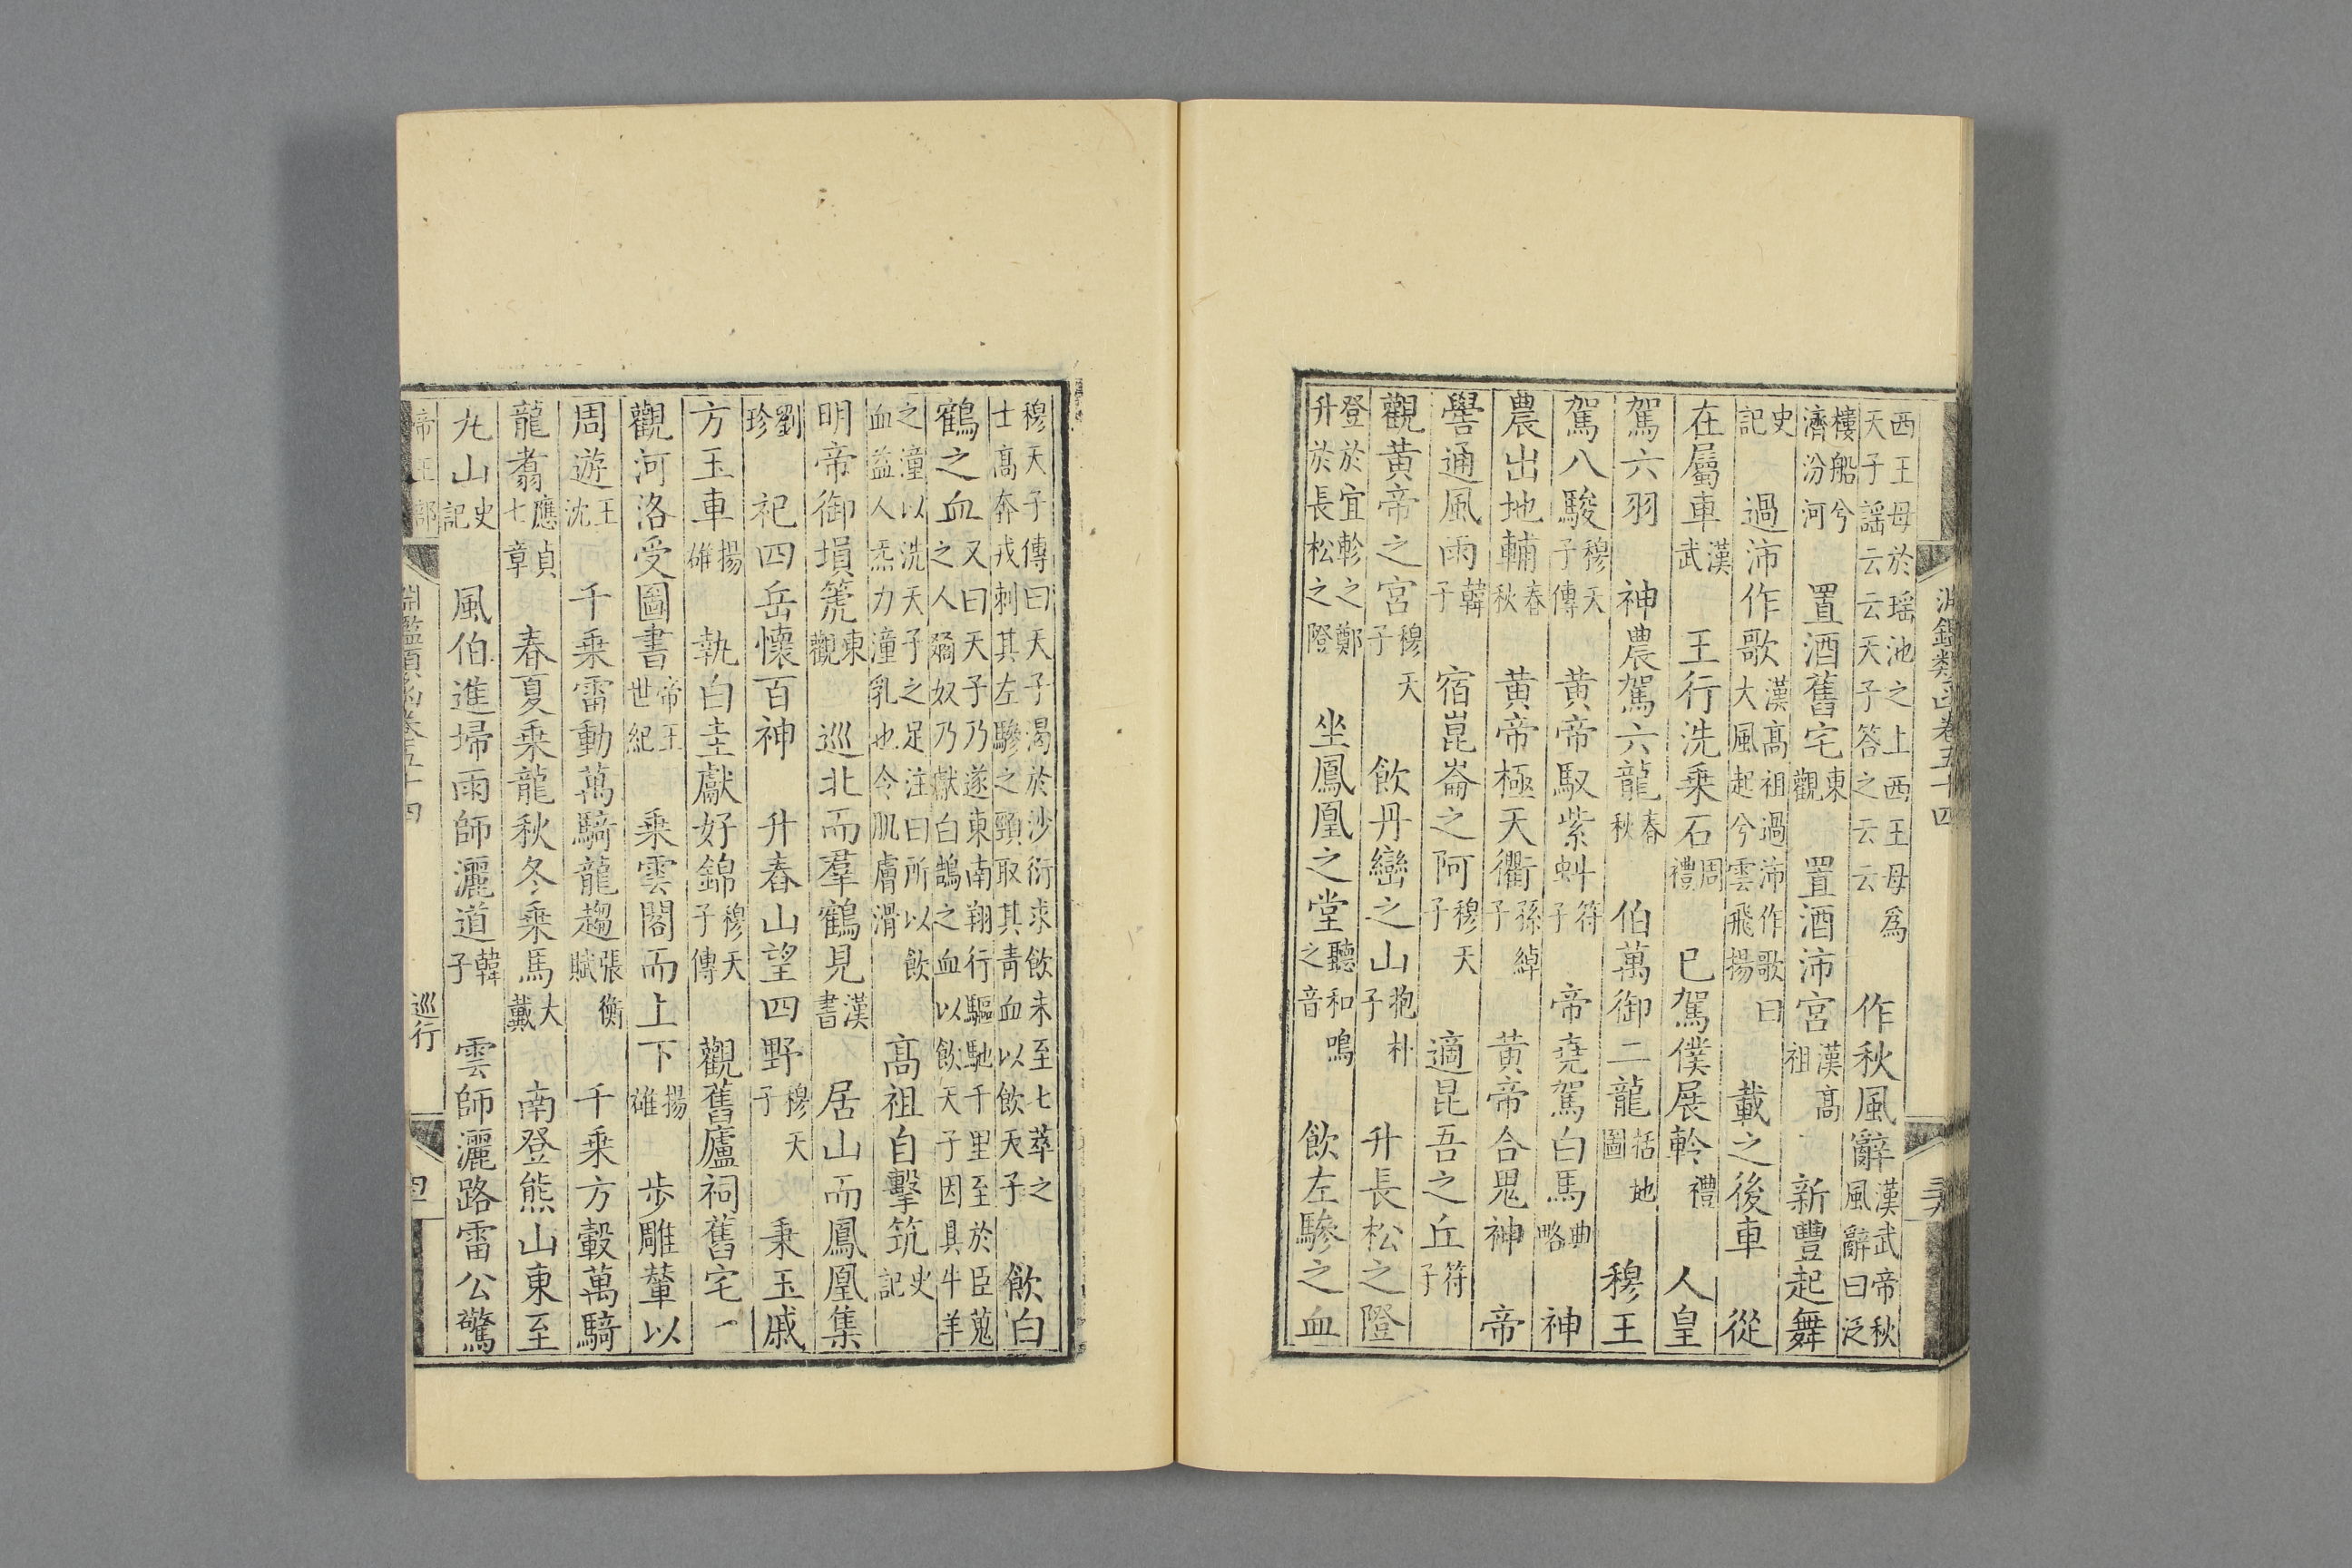 淵鑑類函卷五十四
西王母於瑤池之上西王母爲天子謠云云天子答之云云 作秋風辭漢武帝秋風辭曰泛
樓船兮濟汾河 置酒舊宅東觀 置酒沛宮漢高祖 新豐起舞
史記 過沛作歌漢高祖過沛作歌曰大風起兮雲飛揚 載之後車 從
在屬車漢武 王行洗乘石周禮 巳駕僕展軨禮 人皇
駕六羽 神農駕六龍春秋 伯萬御二龍括地圖 穆王
駕八駿穆天子傳 黃帝馭紫虯符子 帝堯駕白馬典略 神
農出地輔春秋 黃帝極天衢孫綽子 黃帝合鬼神 帝
嚳通風雨韓子 宿崑崙之阿穆天子 適昆吾之丘符子
觀黃帝之宮穆天子 飲丹巒之山抱朴子 升長松之隥
登於宜軫之鄭升於長松之隥 坐鳳凰之堂聽和鳴之音 飲左驂之血
穆天子傳曰天子渴於沙衍求飲未至七萃之士高奔戎刺其左驂之頸取其青血以飲天子 飲白
鶴之血又曰天子乃遂東南翔行驅馳千里至於臣蒐之人㺒奴乃獻白鵠之血以飲天子因具牛羊
之湩以洗天子之足注曰所以飲血益人炁力湩乳也令肌膚滑 高祖自擊筑史記
明帝御塤箎東觀 巡北而羣鶴見漢書 居山而鳳凰集
劉珍 祀四岳懷百神 升舂山望四野穆天子 秉玉戚
方玉車揚雄 執白圭獻好錦穆天子傳 觀舊廬祠舊宅
觀河洛受圖書帝王世紀 乘雲閣而上下揚雄 步雕輦以
周遊王沈 千乘雷動萬騎龍趨張衡賦 千乘方轂萬騎
龍翥應貞七章 春夏乘龍秋冬乘馬大戴 南登熊山東至
九山史記 風伯進埽雨師灑道韓子 雲師灑路雷公驚
帝王部 淵鑑類函卷五十四 巡行 四